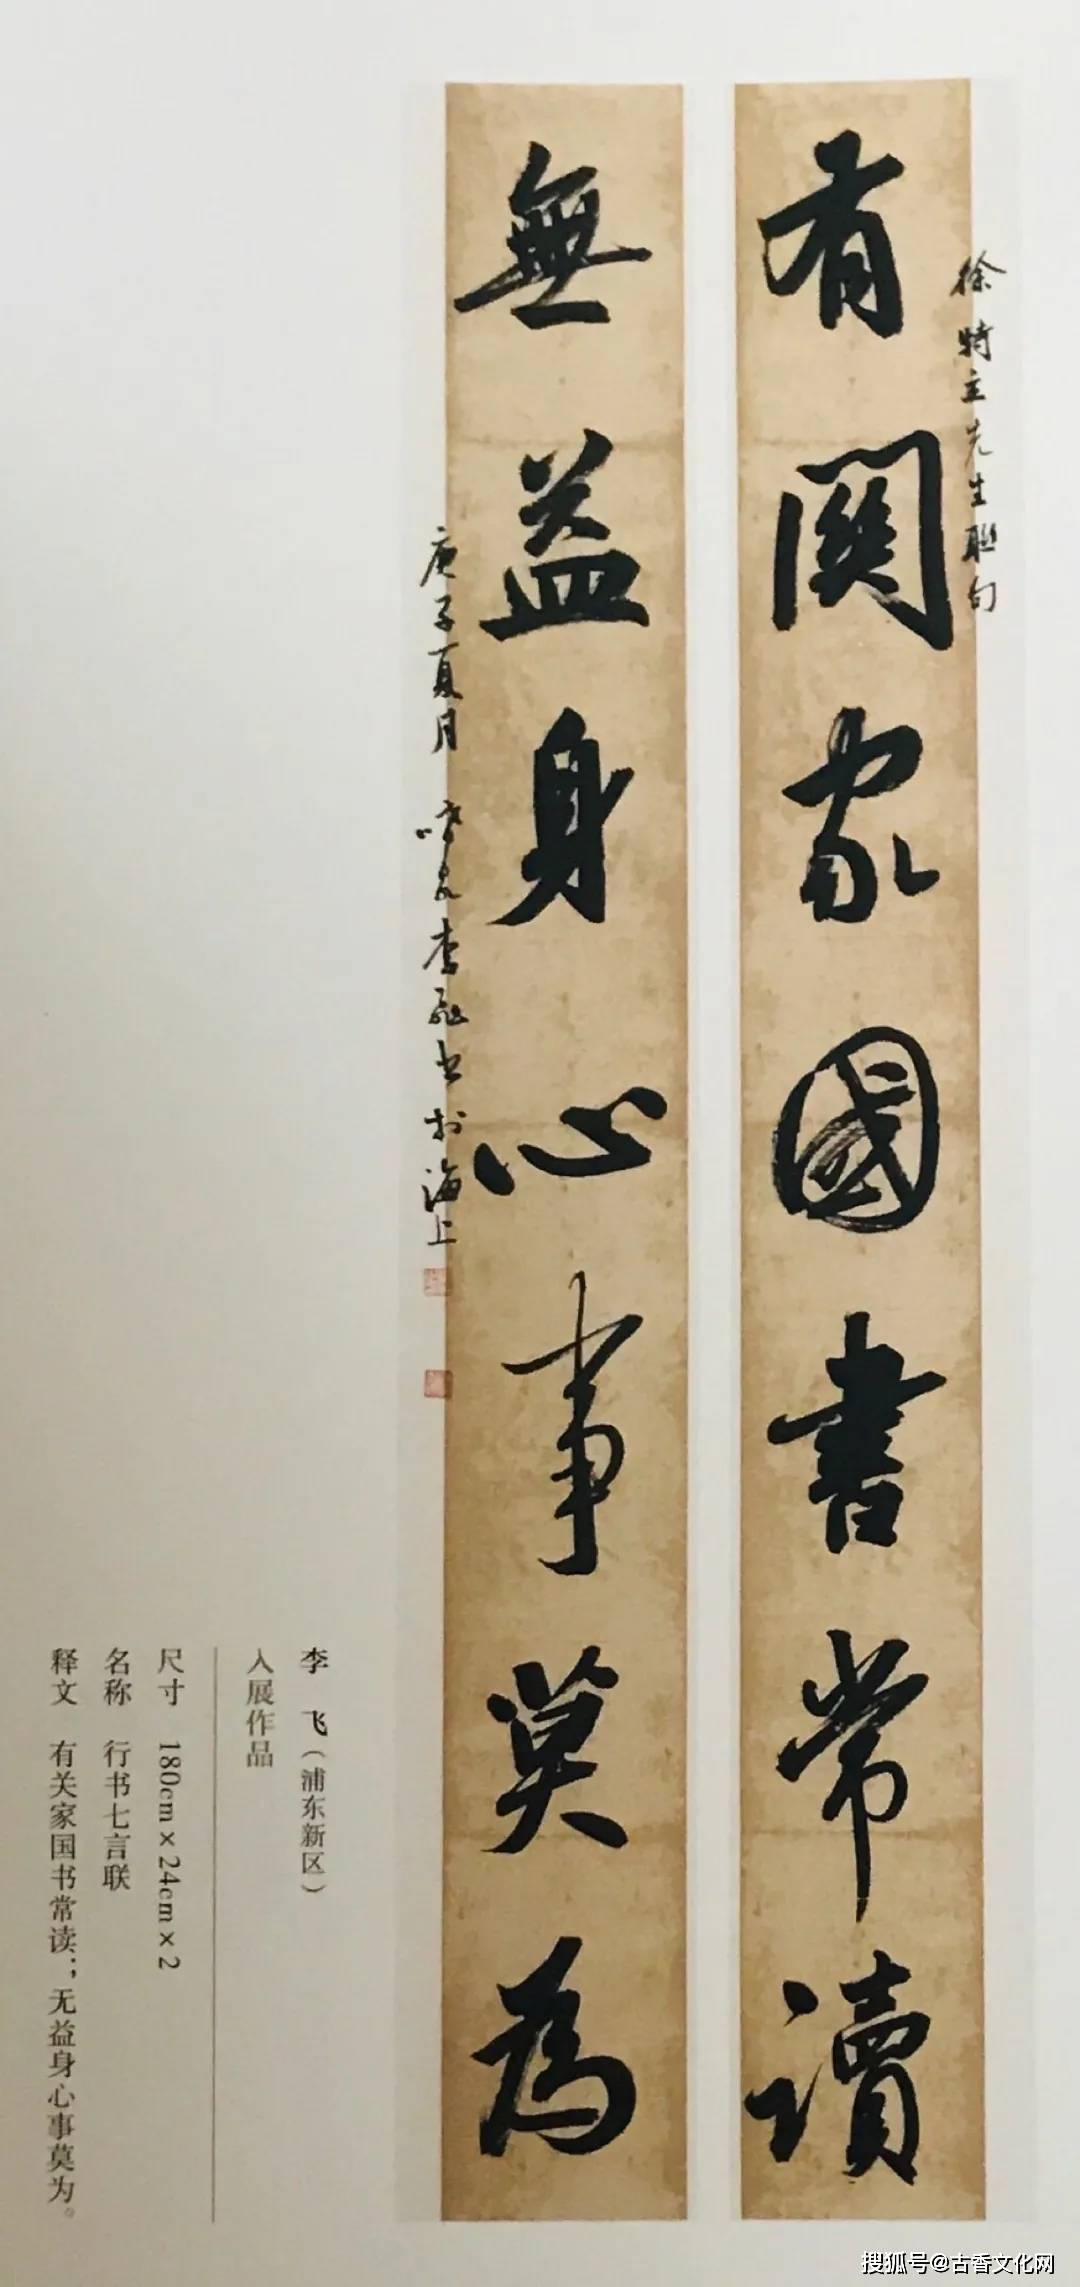 徐特立先生聯句
有關家國書常讀
無益身心事莫為
庚子夏月 李飛書於海上
李 飞（浦东新区）
入展作品
尺寸 180cm×24cm×2
名称 行书七言联
释文 有关家国书常读；无益身心事莫为。
搜狐号@古香文化网